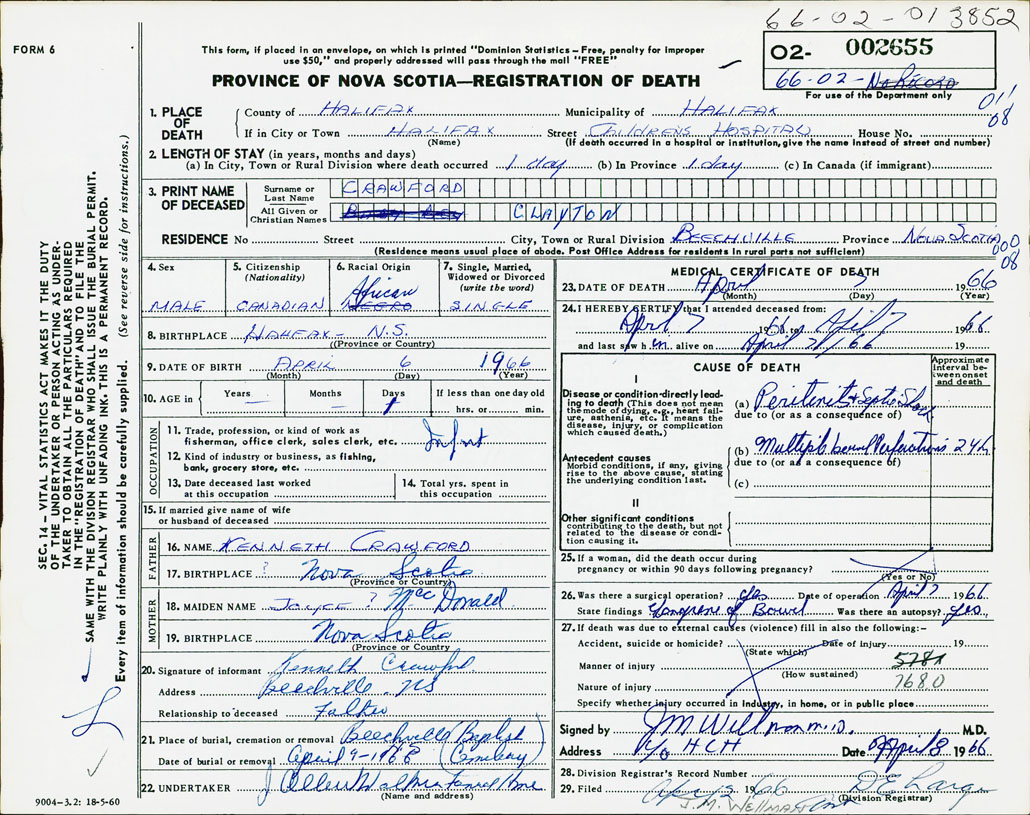 66-02-013852
FORM 6
This form, if placed in an envelope, on which is printed "Dominion Statistics – Free, penalty for improper
use $50," and properly addressed will pass through the mail "FREE"
PROVINCE OF NOVA SCOTIA—REGISTRATION OF DEATH
02- 002655
66-02- No Record
For use of the Department only
011
08
1. PLACE OF DEATH
County of HALIFAX Municipality of HALIFAX
If in City or Town HALIFAX Street CHILDRENS HOSPITAL House No.
(Name) (If death occurred in a hospital or institution, give the name instead of street and number)
2. LENGTH OF STAY (in years, months and days)
(a) In City, Town or Rural Division where death occurred 1 day (b) In Province 1 day (c) In Canada (if immigrant)
3. PRINT NAME OF DECEASED
Surname or Last Name CRAWFORD
All Given or Christian Names CLAYTON
RESIDENCE No Street City, Town or Rural Division BEECHVILLE Province NOVA SCOTIA
000
08
(Residence means usual place of abode. Post Office Address for residents in rural parts not sufficient)
4. Sex
MALE
5. Citizenship
(Nationality)
CANADIAN
6. Racial Origin
African
NEGRO
7. Single, Married,
Widowed or Divorced
(write the word)
SINGLE
8. BIRTHPLACE HALIFAX - N.S.
(Province or Country)
9. DATE OF BIRTH APRIL 6 1966
(Month) (Day) (Year)
10. AGE in
Years
Months
Days
1
If less than one day old
hrs. or min.
OCCUPATION
11. Trade, profession, or kind of work as
fisherman, office clerk, sales clerk, etc. Infant
12. Kind of industry or business, as fishing,
bank, grocery store, etc.
13. Date deceased last worked
at this occupation
14. Total yrs. spent in
this occupation
15. If married give name of wife
or husband of deceased
FATHER
16. NAME KENNETH CRAWFORD
17. BIRTHPLACE ? Nova Scotia
(Province or Country)
MOTHER
18. MAIDEN NAME JOYCE ? MacDonald
19. BIRTHPLACE Nova Scotia
(Province or Country)
20. Signature of informant Kenneth Crawford
Address Beechville. NS
Relationship to deceased Father
21. Place of burial, cremation or removal Beechville (Baptist
Date of burial or removal April 9-1966 Cemetery)
22. UNDERTAKER J Allen
(Name and address)
9004-3.2: 18-5-60
SEC. 14 – VITAL STATISTICS ACT MAKES IT THE DUTY
OF THE UNDERTAKER OR PERSON ACTING AS UNDER-
TAKER TO OBTAIN ALL THE PARTICULARS REQUIRED
IN THE "REGISTRATION OF DEATH" AND TO FILE THE
SAME WITH THE DIVISION REGISTRAR WHO SHALL ISSUE THE BURIAL PERMIT.
WRITE PLAINLY WITH UNFADING INK. THIS IS A PERMANENT RECORD.
Every item of information should be carefully supplied. (See reverse side for instructions.)
MEDICAL CERTIFICATE OF DEATH
23. DATE OF DEATH April 7 1966
(Month) (Day) (Year)
24. I HEREBY CERTIFY that I attended deceased from:
April 7 1966 to April 7 1966
and last saw him alive on April 7/66 19
CAUSE OF DEATH
Approximate
interval be-
tween onset
and death
I
Disease or condition directly lead-
ing to death (This does not mean
the mode of dying, e.g., heart fail-
ure, asthenia, etc. It means the
disease, injury, or complication
which caused death.)
(a) Peritonitis + Septic Shock
due to (or as a consequence of)
Antecedent causes
Morbid conditions, if any, giving
rise to the above cause, stating
the underlying condition last.
(b) Multiple bowel Perforations 24h
due to (or as a consequence of)
(c)
II
Other significant conditions
contributing to the death, but not
related to the disease or condi-
tion causing it.
25. If a woman, did the death occur during
pregnancy or within 90 days following pregnancy?
(Yes or No)
26. Was there a surgical operation? yes Date of operation April 7 1966
State findings Gangrene of Bowel Was there an autopsy? yes
27. If death was due to external causes (violence) fill in also the following:–
Accident, suicide or homicide? Date of injury 19
(State which)
Manner of injury 578X
(How sustained)
Nature of injury 768.0
Specify whether injury occurred in industry, in home, or in public place
Signed by JM Wellman M.D. M.D.
Address % HCH Date April 8 1966
28. Division Registrar's Record Number
29. Filed 1966
(Division Registrar)
J.M. WELLMAN